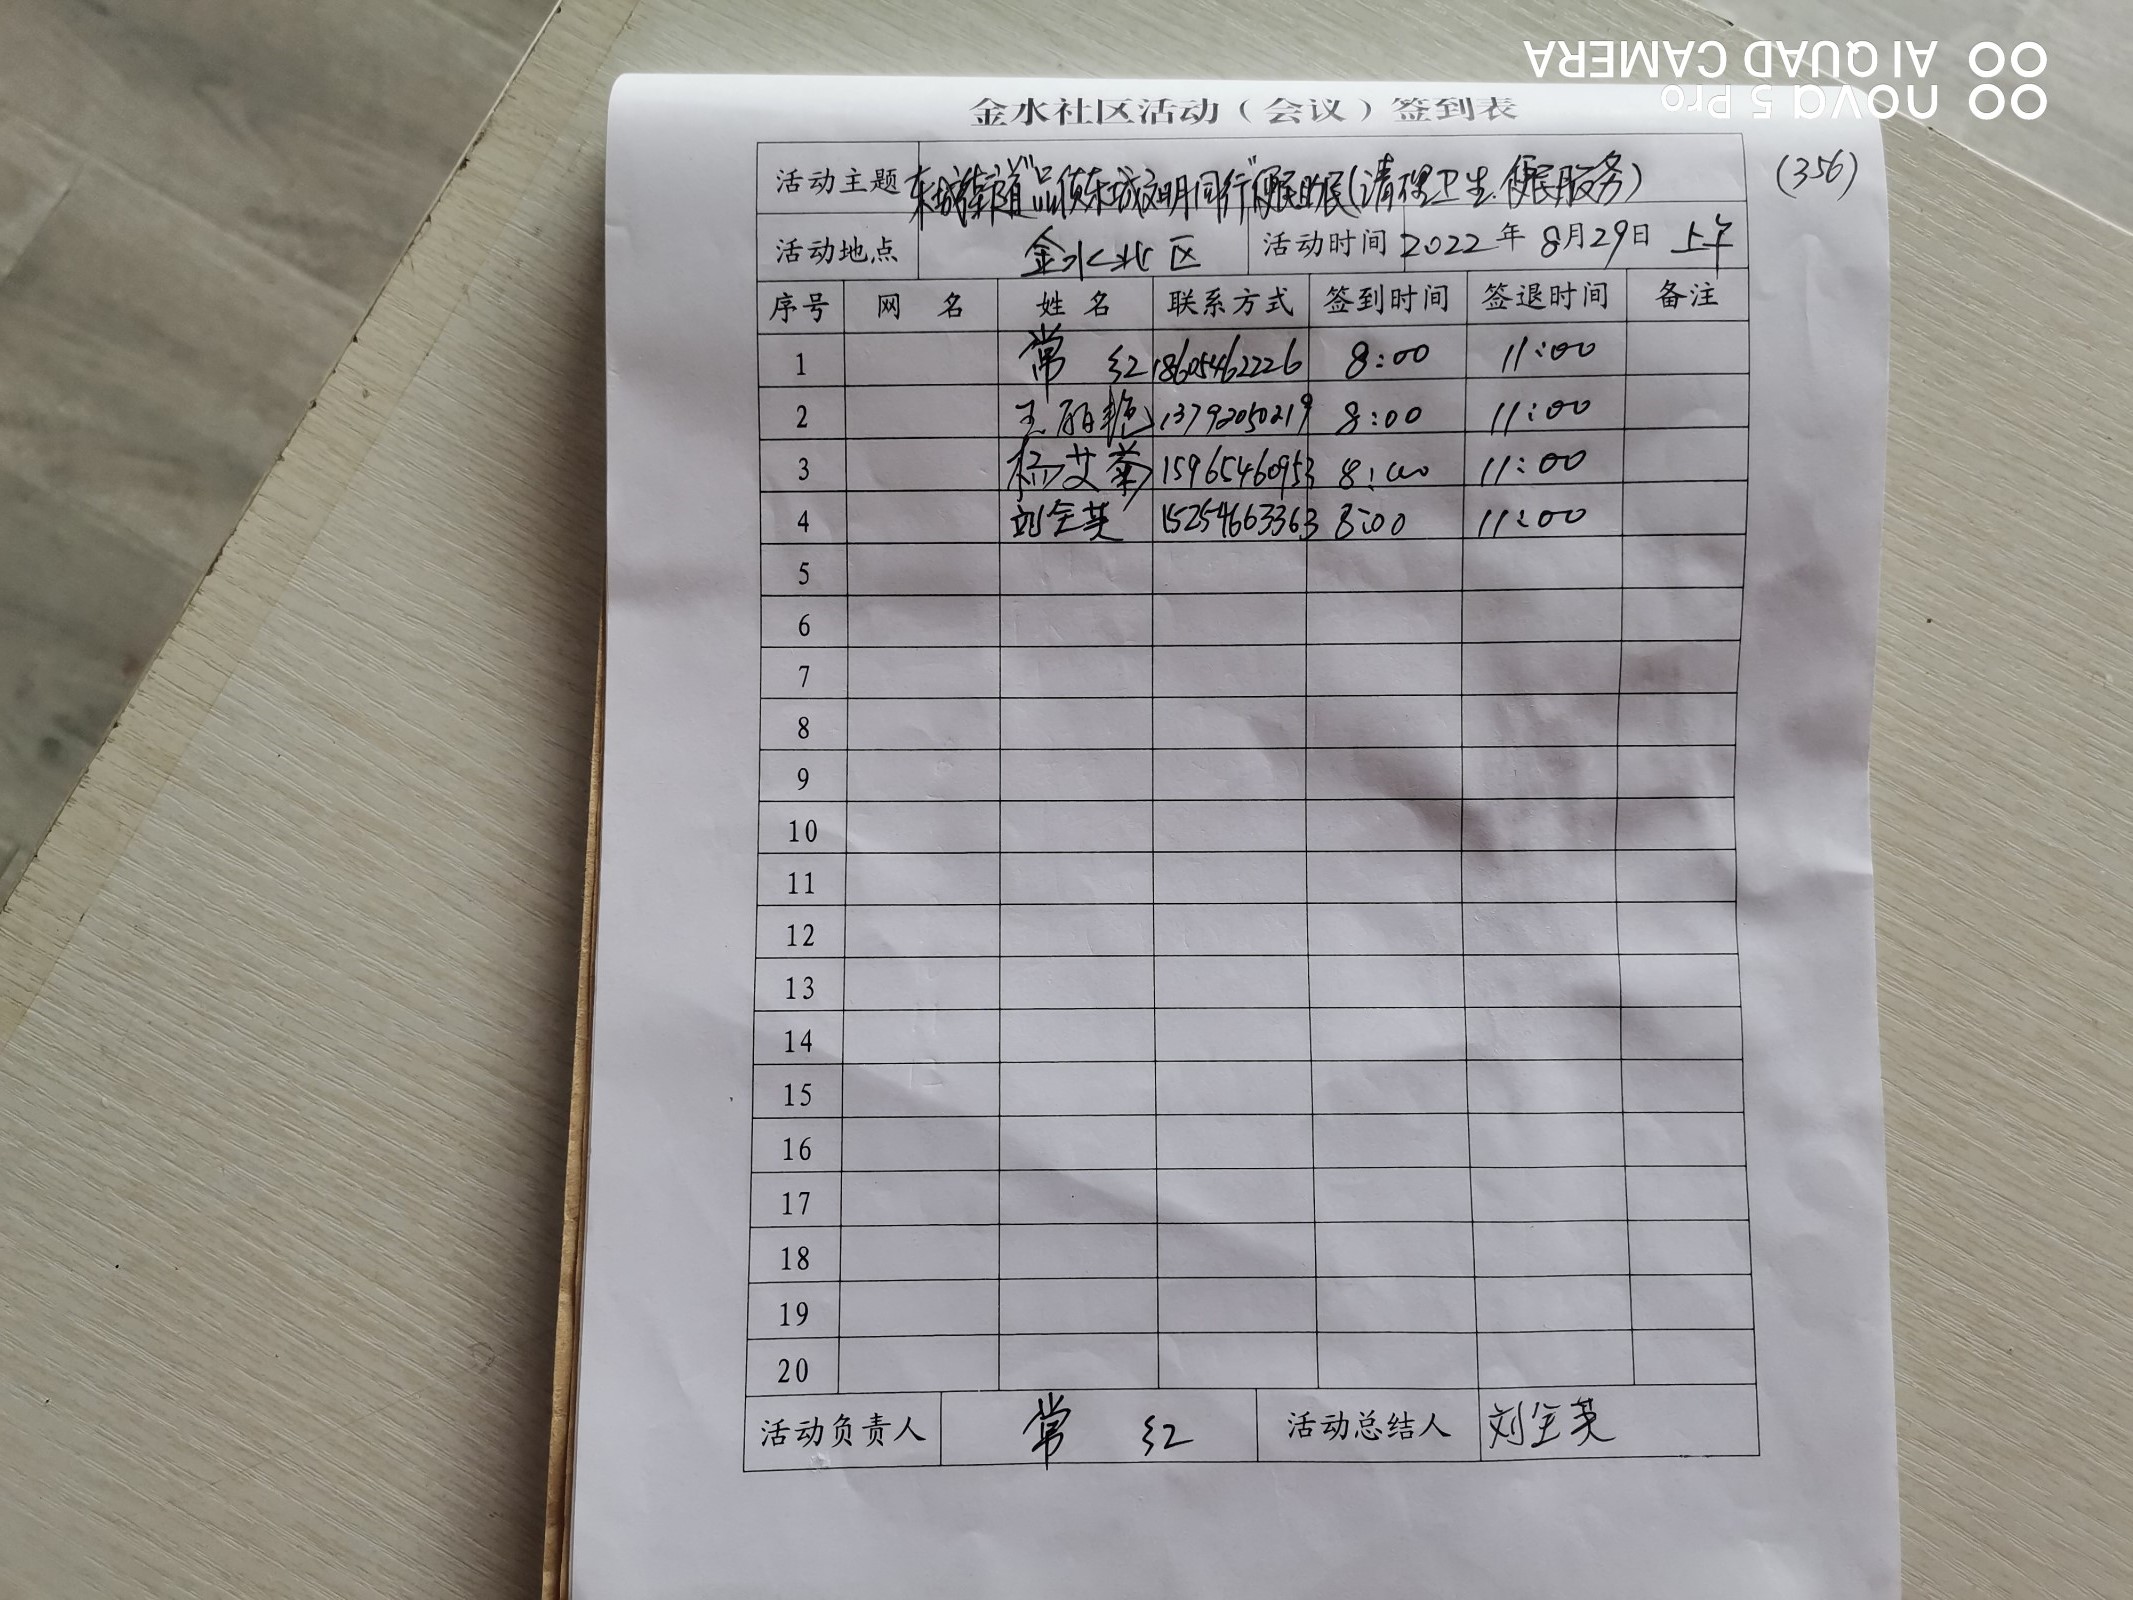 金水社区活动（会议）签到表
(356)
活动主题 东城街道"品质东城文明同行"便民助民(清理卫生.便民服务)
活动地点 金水北区 活动时间 2022年8月29日 上午
序号 网 名 姓 名 联系方式 签到时间 签退时间 备注
1 常 红 18605462226 8:00 11:00
2 王丽艳 13792050219 8:00 11:00
3 杨艾菊 15965460953 8:00 11:00
4 刘全英 15254663363 8:00 11:00
5
6
7
8
9
10
11
12
13
14
15
16
17
18
19
20
活动负责人 常 红 活动总结人 刘全英
nova 5 Pro
AI QUAD CAMERA